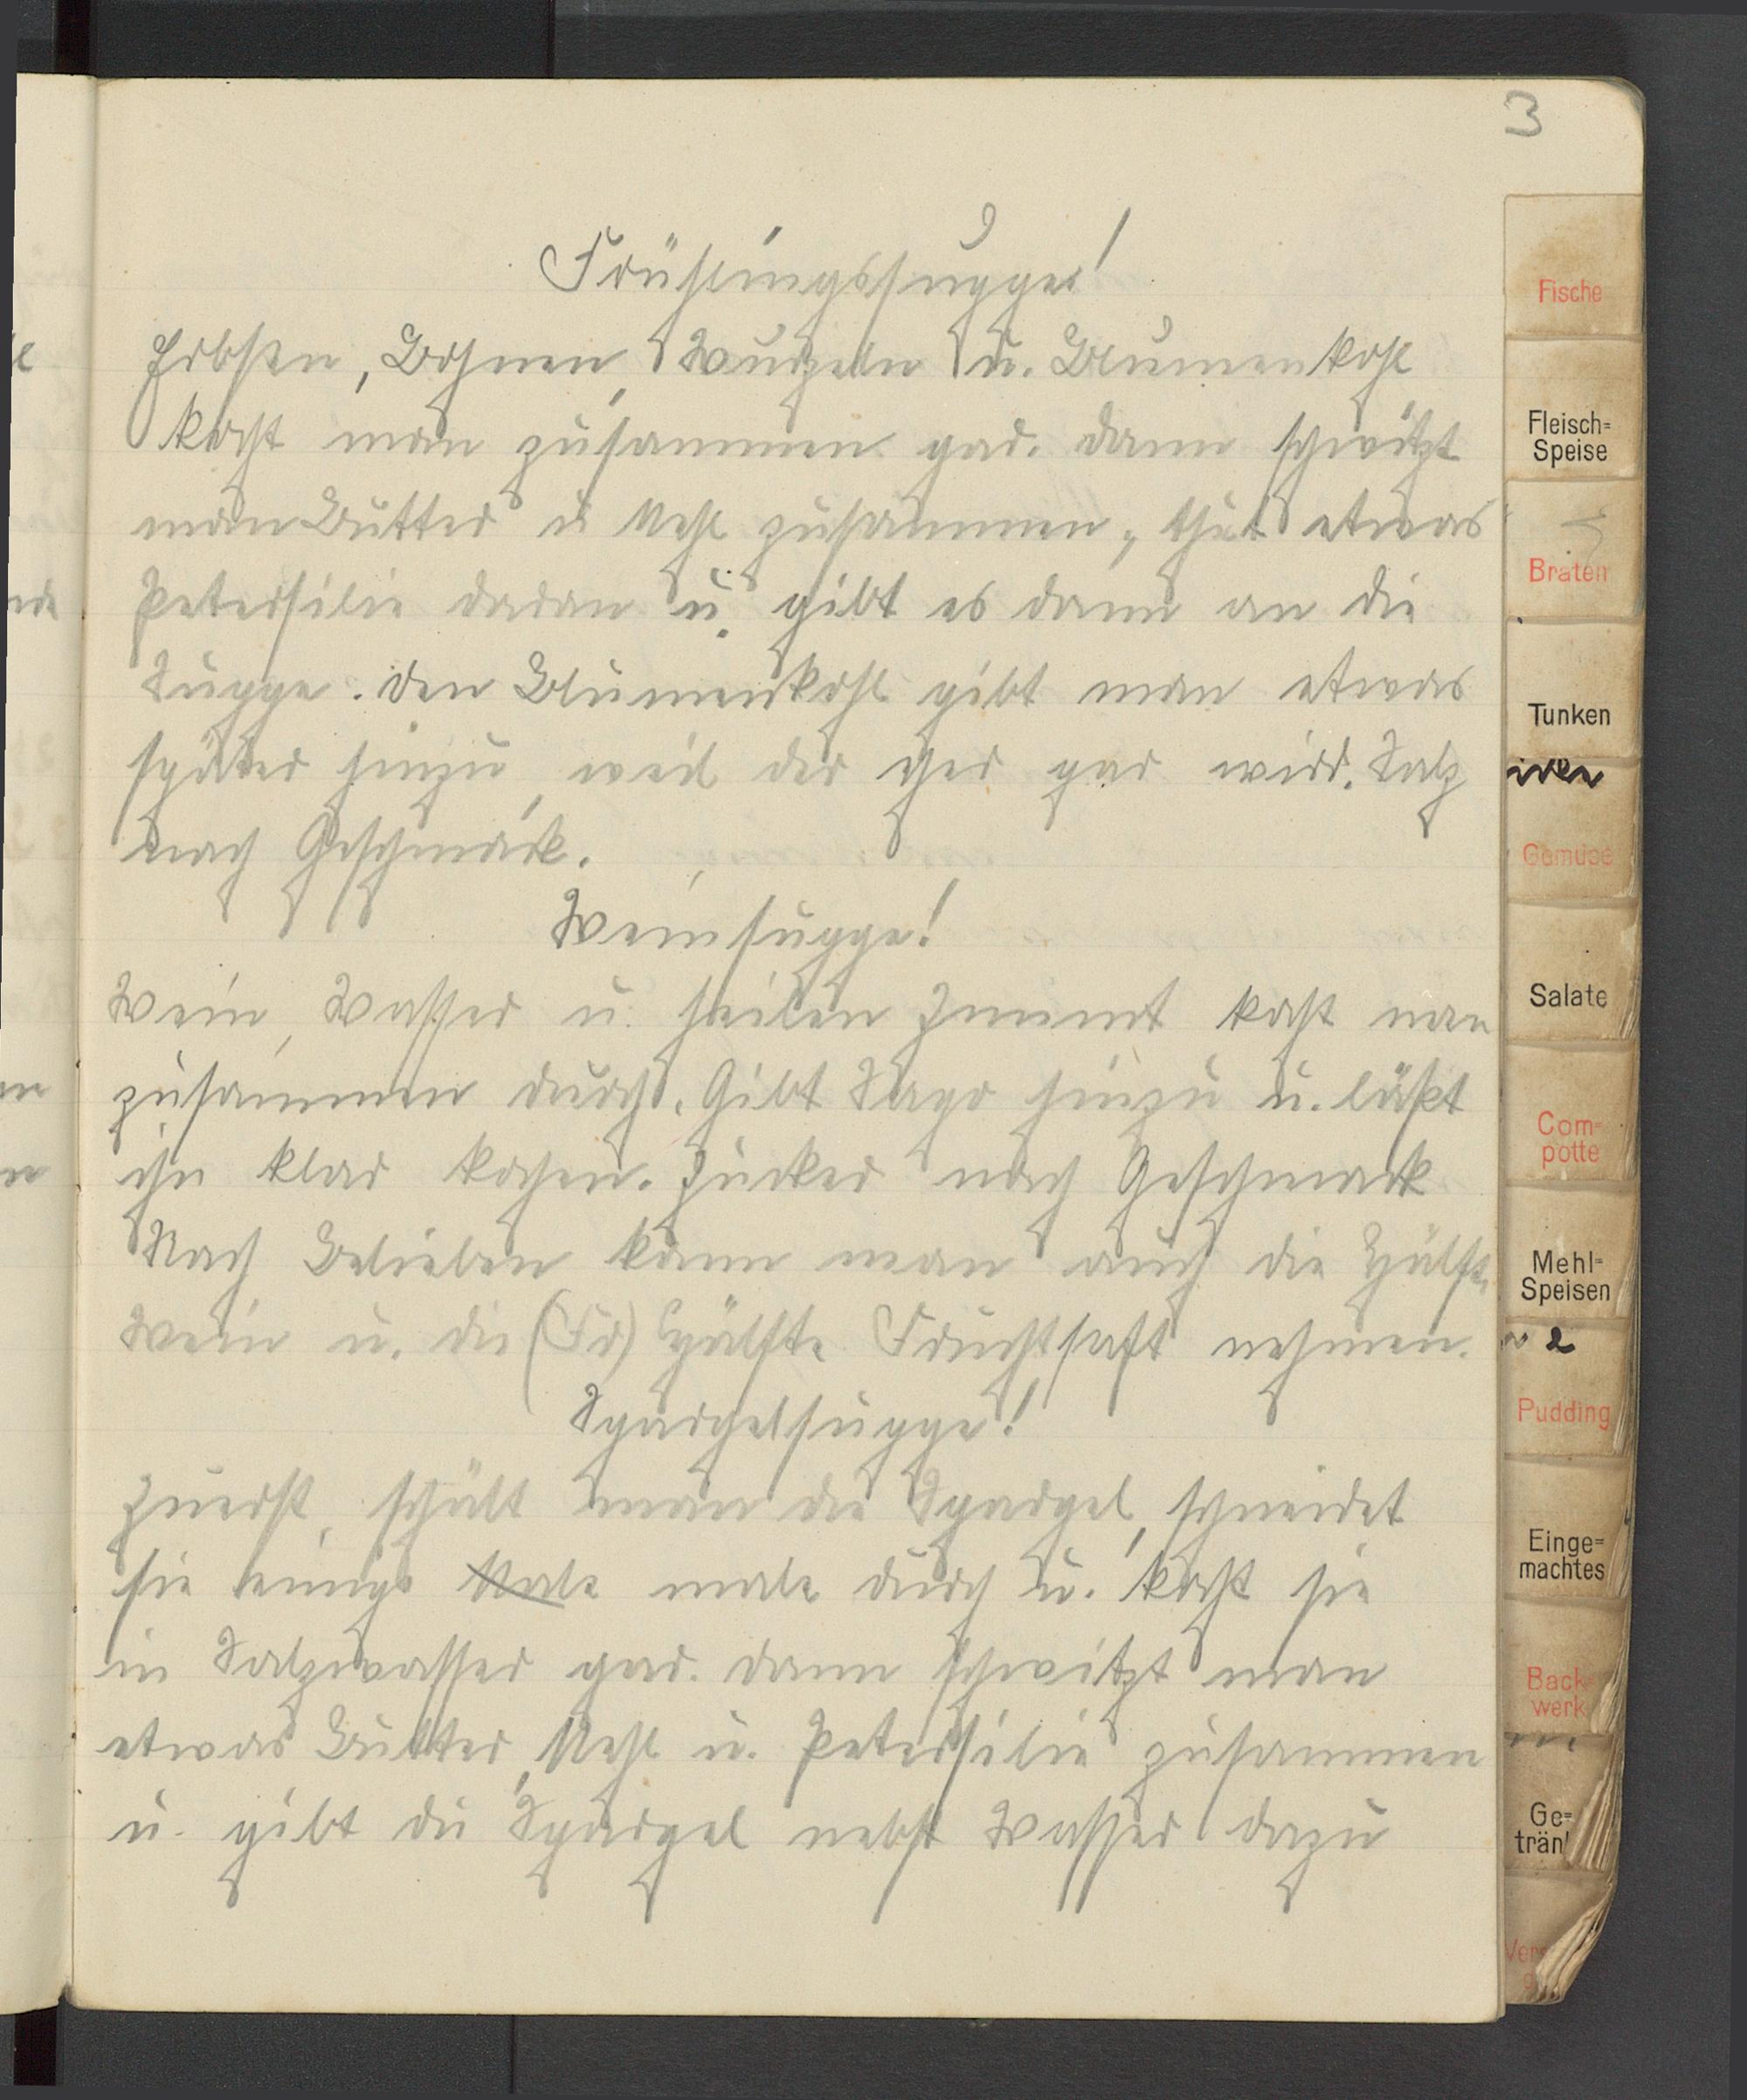 3
Frühlingssuppe!
Erbsen, Bohnen, Wurzeln u. Blumenkohl
kocht man zusammen gar. Dann schwitzt
man Butter u Mehl zusammen, thut etwas
Petersilie daran u. gibt es dann an die
Suppe. Den Blumenkohl gibt man etwas
später hinzu, weil der eher gar wird. Salz
nach Geschmack.
Weinsuppe!
Wein, Wasser u. heilen Zimmt kocht man
zusammen durch. Gibt Sago hinzu u. läßt
ihn klar kochen. Zucker nach Geschmack
Nach Belieben kann man auch die Hälfte
Wein u. die (Fr) Hälfte Fruchtsaft nehmen.
Spargelsuppe!
Zuerst, schält man die Spargel, schneidet
sie einige Male male durch u. kocht sie
in Salzwasser gar. Dann schwitzt man
etwas Butter, Mehl u. Petersilie zusammen
u. gibt die Spargel nebst Wasser dazu
Fische
Fleisch=
Speise
Braten
Tunken
Gemüse
Salate
Com-
potte
Mehl=
Speisen
2
Pudding
Einge=
machtes
Back-
werk
Ge=
trän
Ver